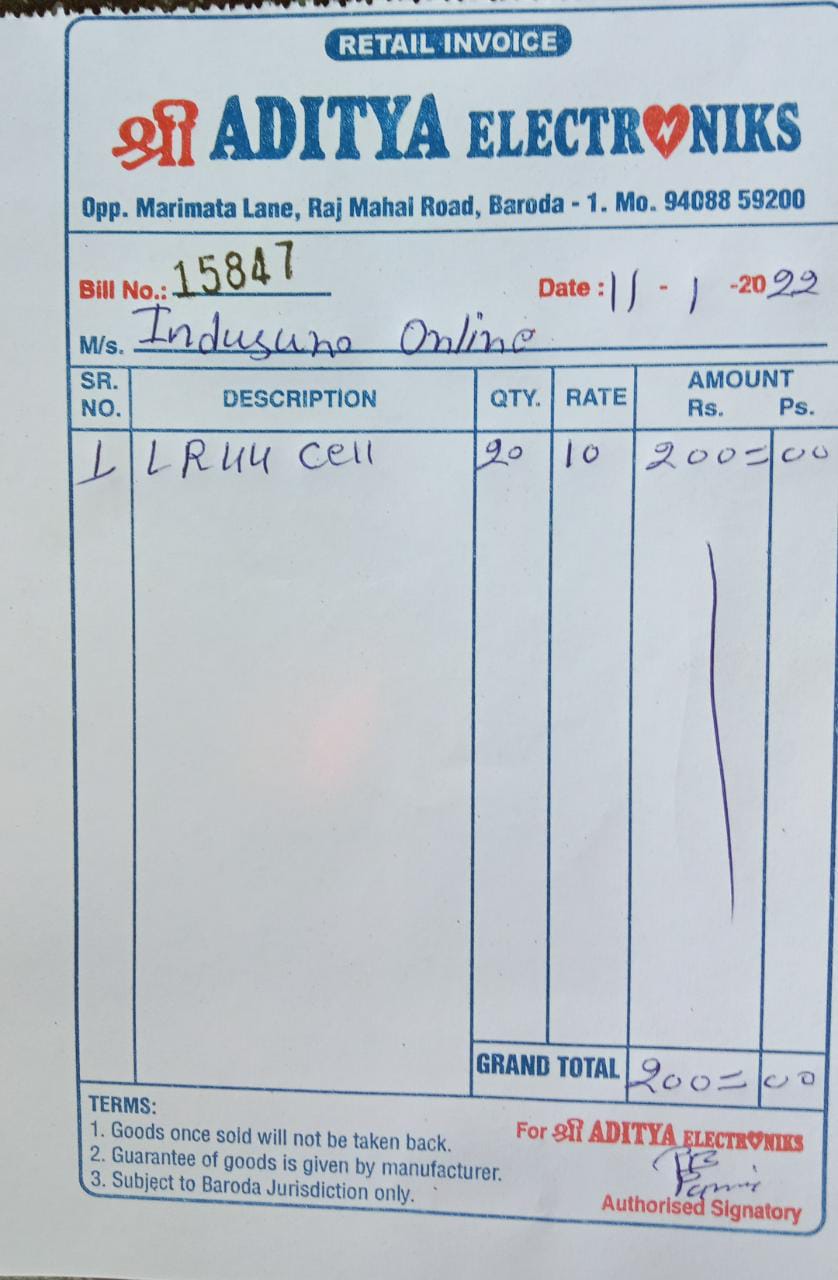 RETAIL INVOICE
श्री ADITYA ELECTRONIKS
Opp. Marimata Lane, Raj Mahal Road, Baroda - 1. Mo. 94088 59200
Bill No.: 15847 Date : 11 - 1 -2022
M/s. Indusuno Online
SR. NO. DESCRIPTION QTY. RATE AMOUNT Rs. Ps.
1 LR44 Cell 20 10 200=00
GRAND TOTAL 200=00
TERMS:
1. Goods once sold will not be taken back.
2. Guarantee of goods is given by manufacturer.
3. Subject to Baroda Jurisdiction only.
For श्री ADITYA ELECTRONIKS
Authorised Signatory